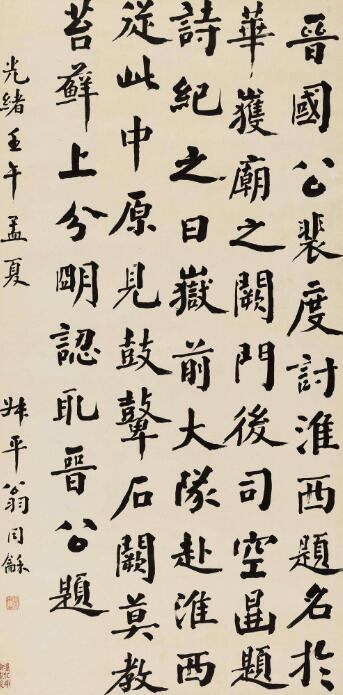 晉國公裴度討淮西題名於
華獲廟之闕門後司空啚題
詩紀之曰嶽前大隊赴淮西
從此中原見鼓鼙石闕莫教
苔蘚上分明認取晉公題
光緒壬午孟夏
叔平翁同龢